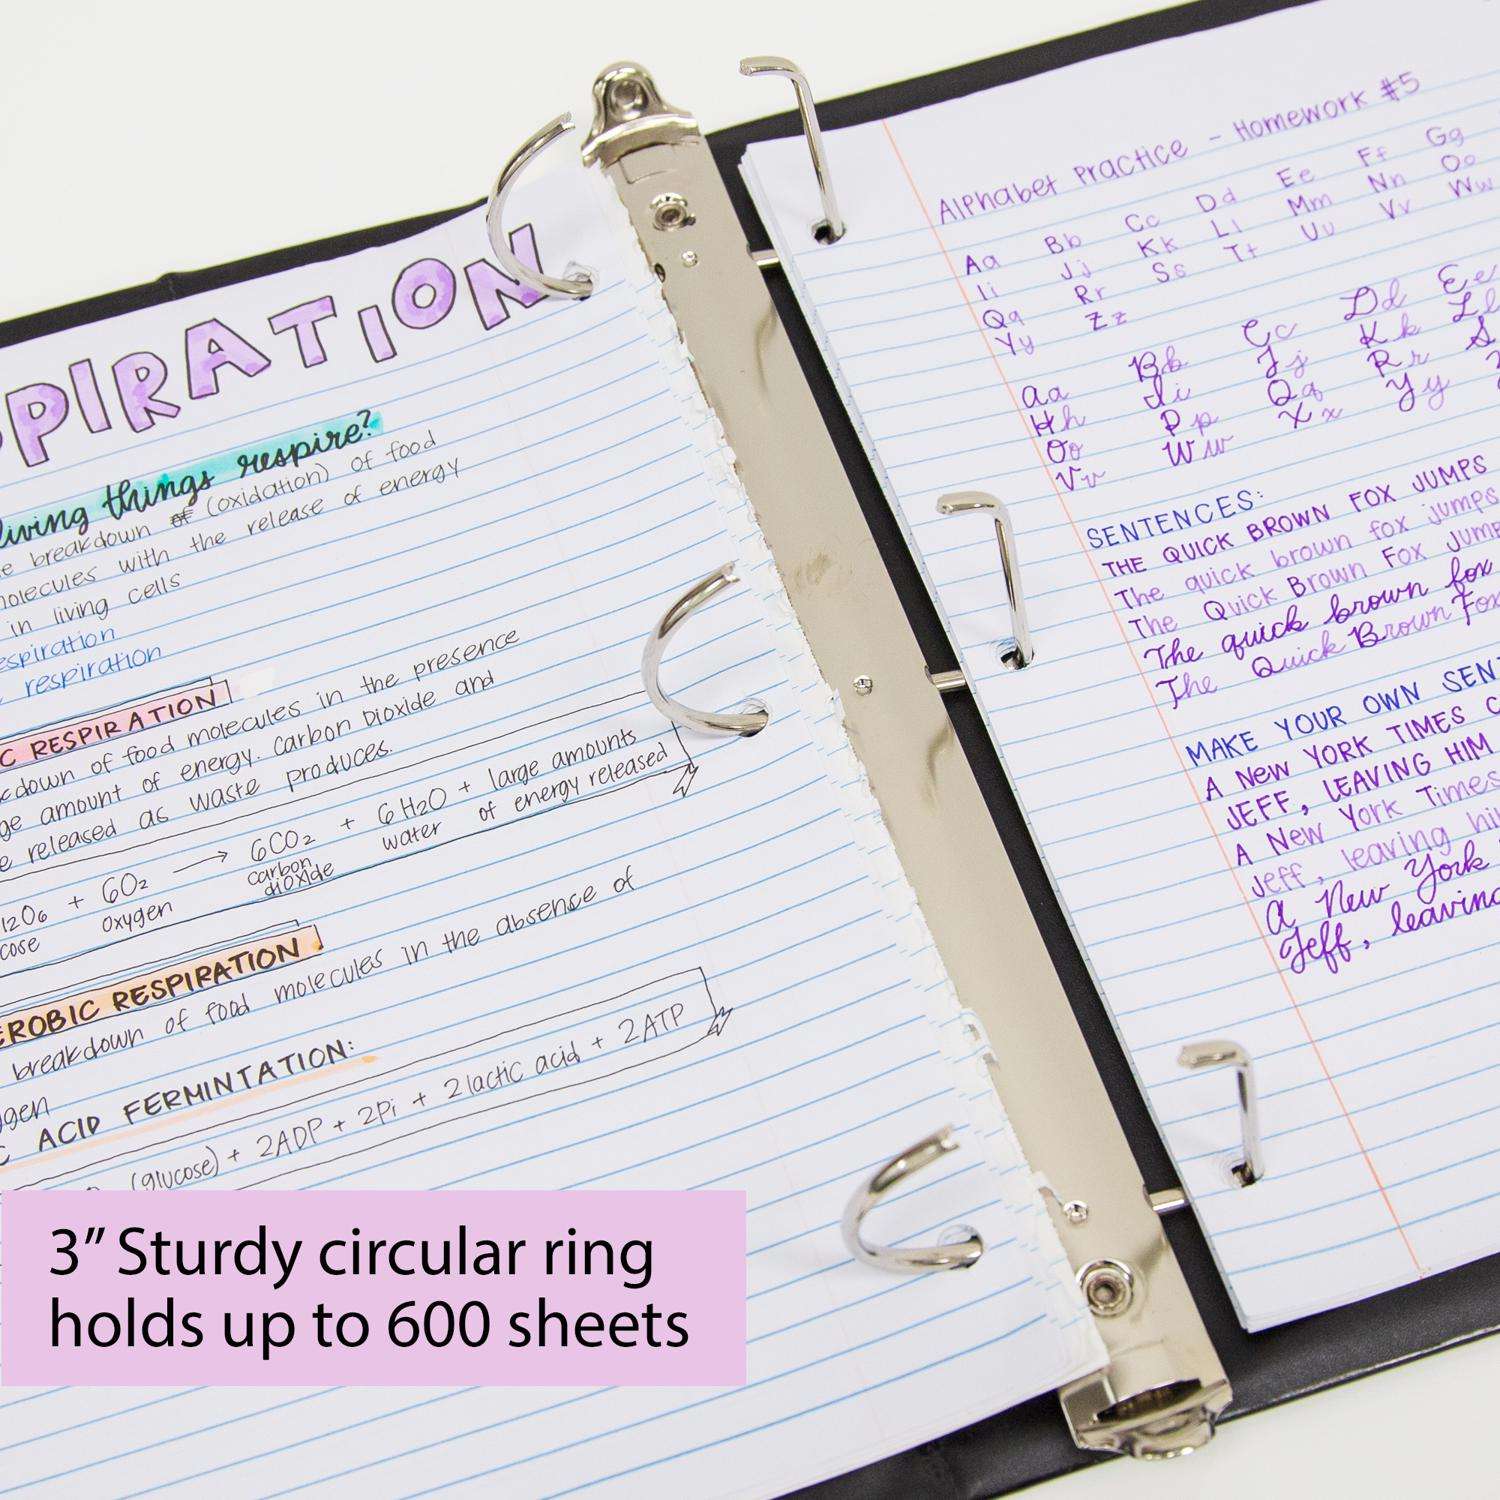 PIRATION
living things respire?
breakdown of (oxidation) of food
molecules with the release of energy
in living cells
espiration
respiration
C RESPIRATION
kdown of food molecules in the presence
ge amount of energy. Carbon Dioxide and
e released as waste produces.
12O6 + 6O2 → 6CO2 + 6H2O + large amounts
cose oxygen carbon dioxide water of energy released
EROBIC RESPIRATION
breakdown of food molecules in the absence of
ygen
C ACID FERMINTATION:
(glucose) + 2ADP + 2Pi + 2lactic acid + 2ATP
3” Sturdy circular ring
holds up to 600 sheets
Alphabet Practice - Homework #5
Aa Bb Cc Dd Ee Ff Gg
Ii Jj Kk Ll Mm Nn Oo
Qq Rr Ss Tt Uu Vv Ww
Yy Zz
Aa Bb Cc Dd Ee
Hh Ii Jj Kk Ll
Oo Pp Qq Rr S
Vv Ww Xx Yy
SENTENCES:
THE QUICK BROWN FOX JUMPS
The quick brown fox jumps
The Quick Brown Fox Jump
The quick brown fox
The Quick Brown Fox
MAKE YOUR OWN SEN
A NEW YORK TIMES C
JEFF, LEAVING HIM
A New York Times
Jeff, leaving hi
A New York
Jeff, leaving